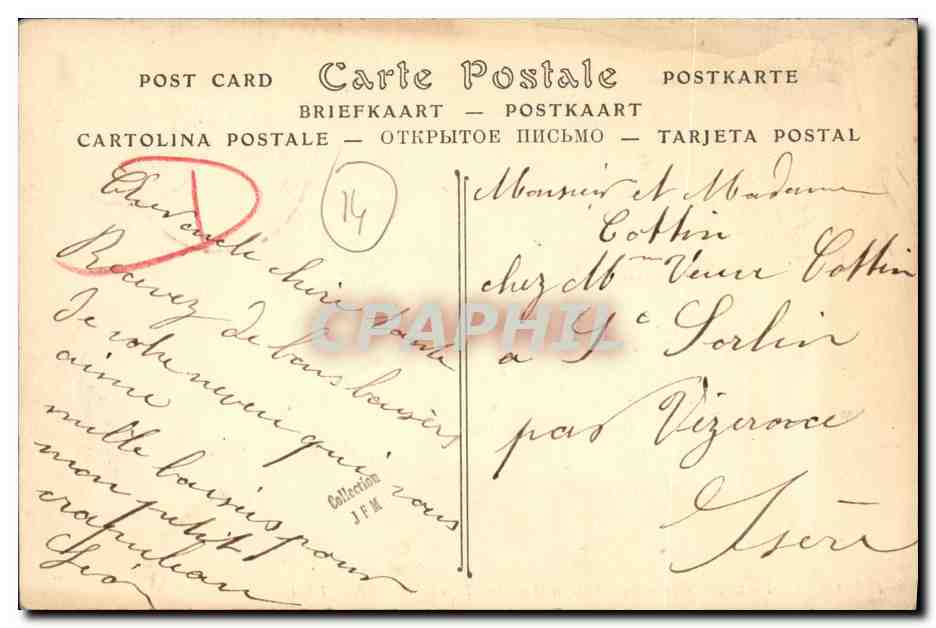 POST CARD Carte Postale POSTKARTE
BRIEFKAART — POSTKAART
CARTOLINA POSTALE — ОТКРЫТОЕ ПИСЬМО — TARJETA POSTAL
D
14
cheri tante
Recevez de bons baisers
de votre neveu qui vous
aime
mille baisers pour
mon petit
Léon
Collection
J F M
Monsieur et Madame
Cottin
chez Mme Veuve Cottin
a St Sorlin
par Vézeronce
Isère
CPAPHIL